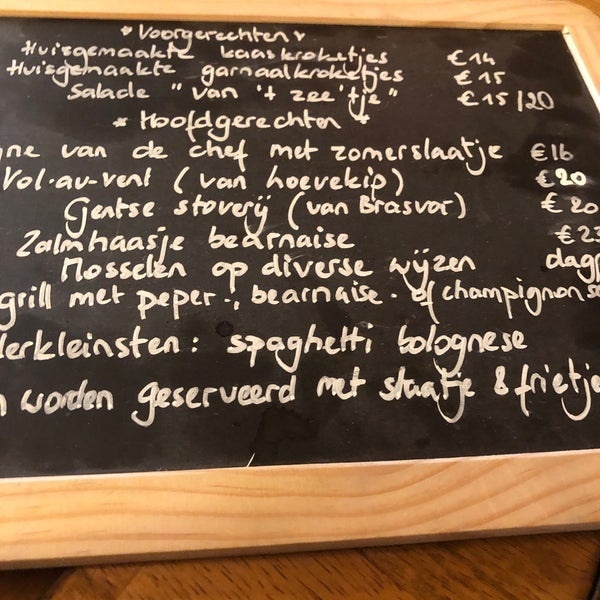 * Voorgerechten *
Huisgemaakte kaaskroketjes €14
Huisgemaakte garnaalkroketjes €15
Salade "van 't zee'tje" €15/20
* Hoofdgerechten *
gne van de chef met zomerslaatje €16
Vol-au-vent (van hoevekip) €20
Gentse stoverij (van Brasvar) €20
Zalmhaasje bearnaise €23
Mosselen op diverse wijzen dagp
grill met peper-, bearnaise- of champignons
lerkleinsten: spaghetti bolognese
n worden geserveerd met slaatje & frietje